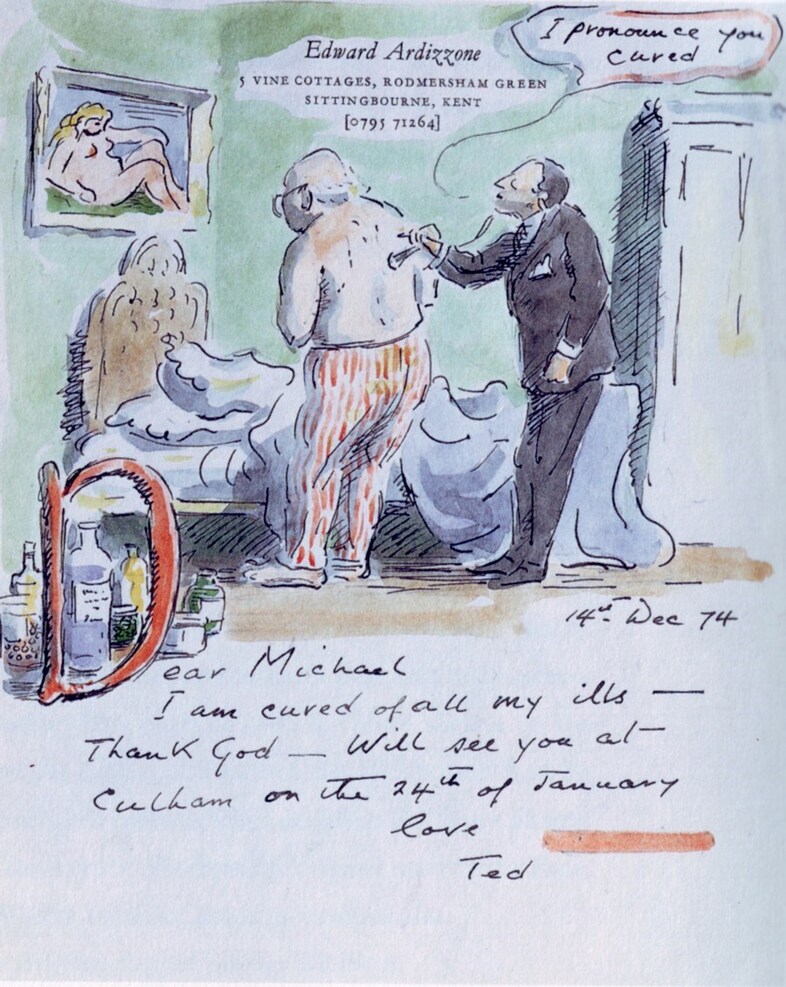 Edward Ardizzone
5 VINE COTTAGES, RODMERSHAM GREEN
SITTINGBOURNE, KENT
[0795 71264]
I pronounce you
cured
14th Dec 74
Dear Michael
I am cured of all my ills —
Thank God — Will see you at
Culham on the 24th of January
love
Ted